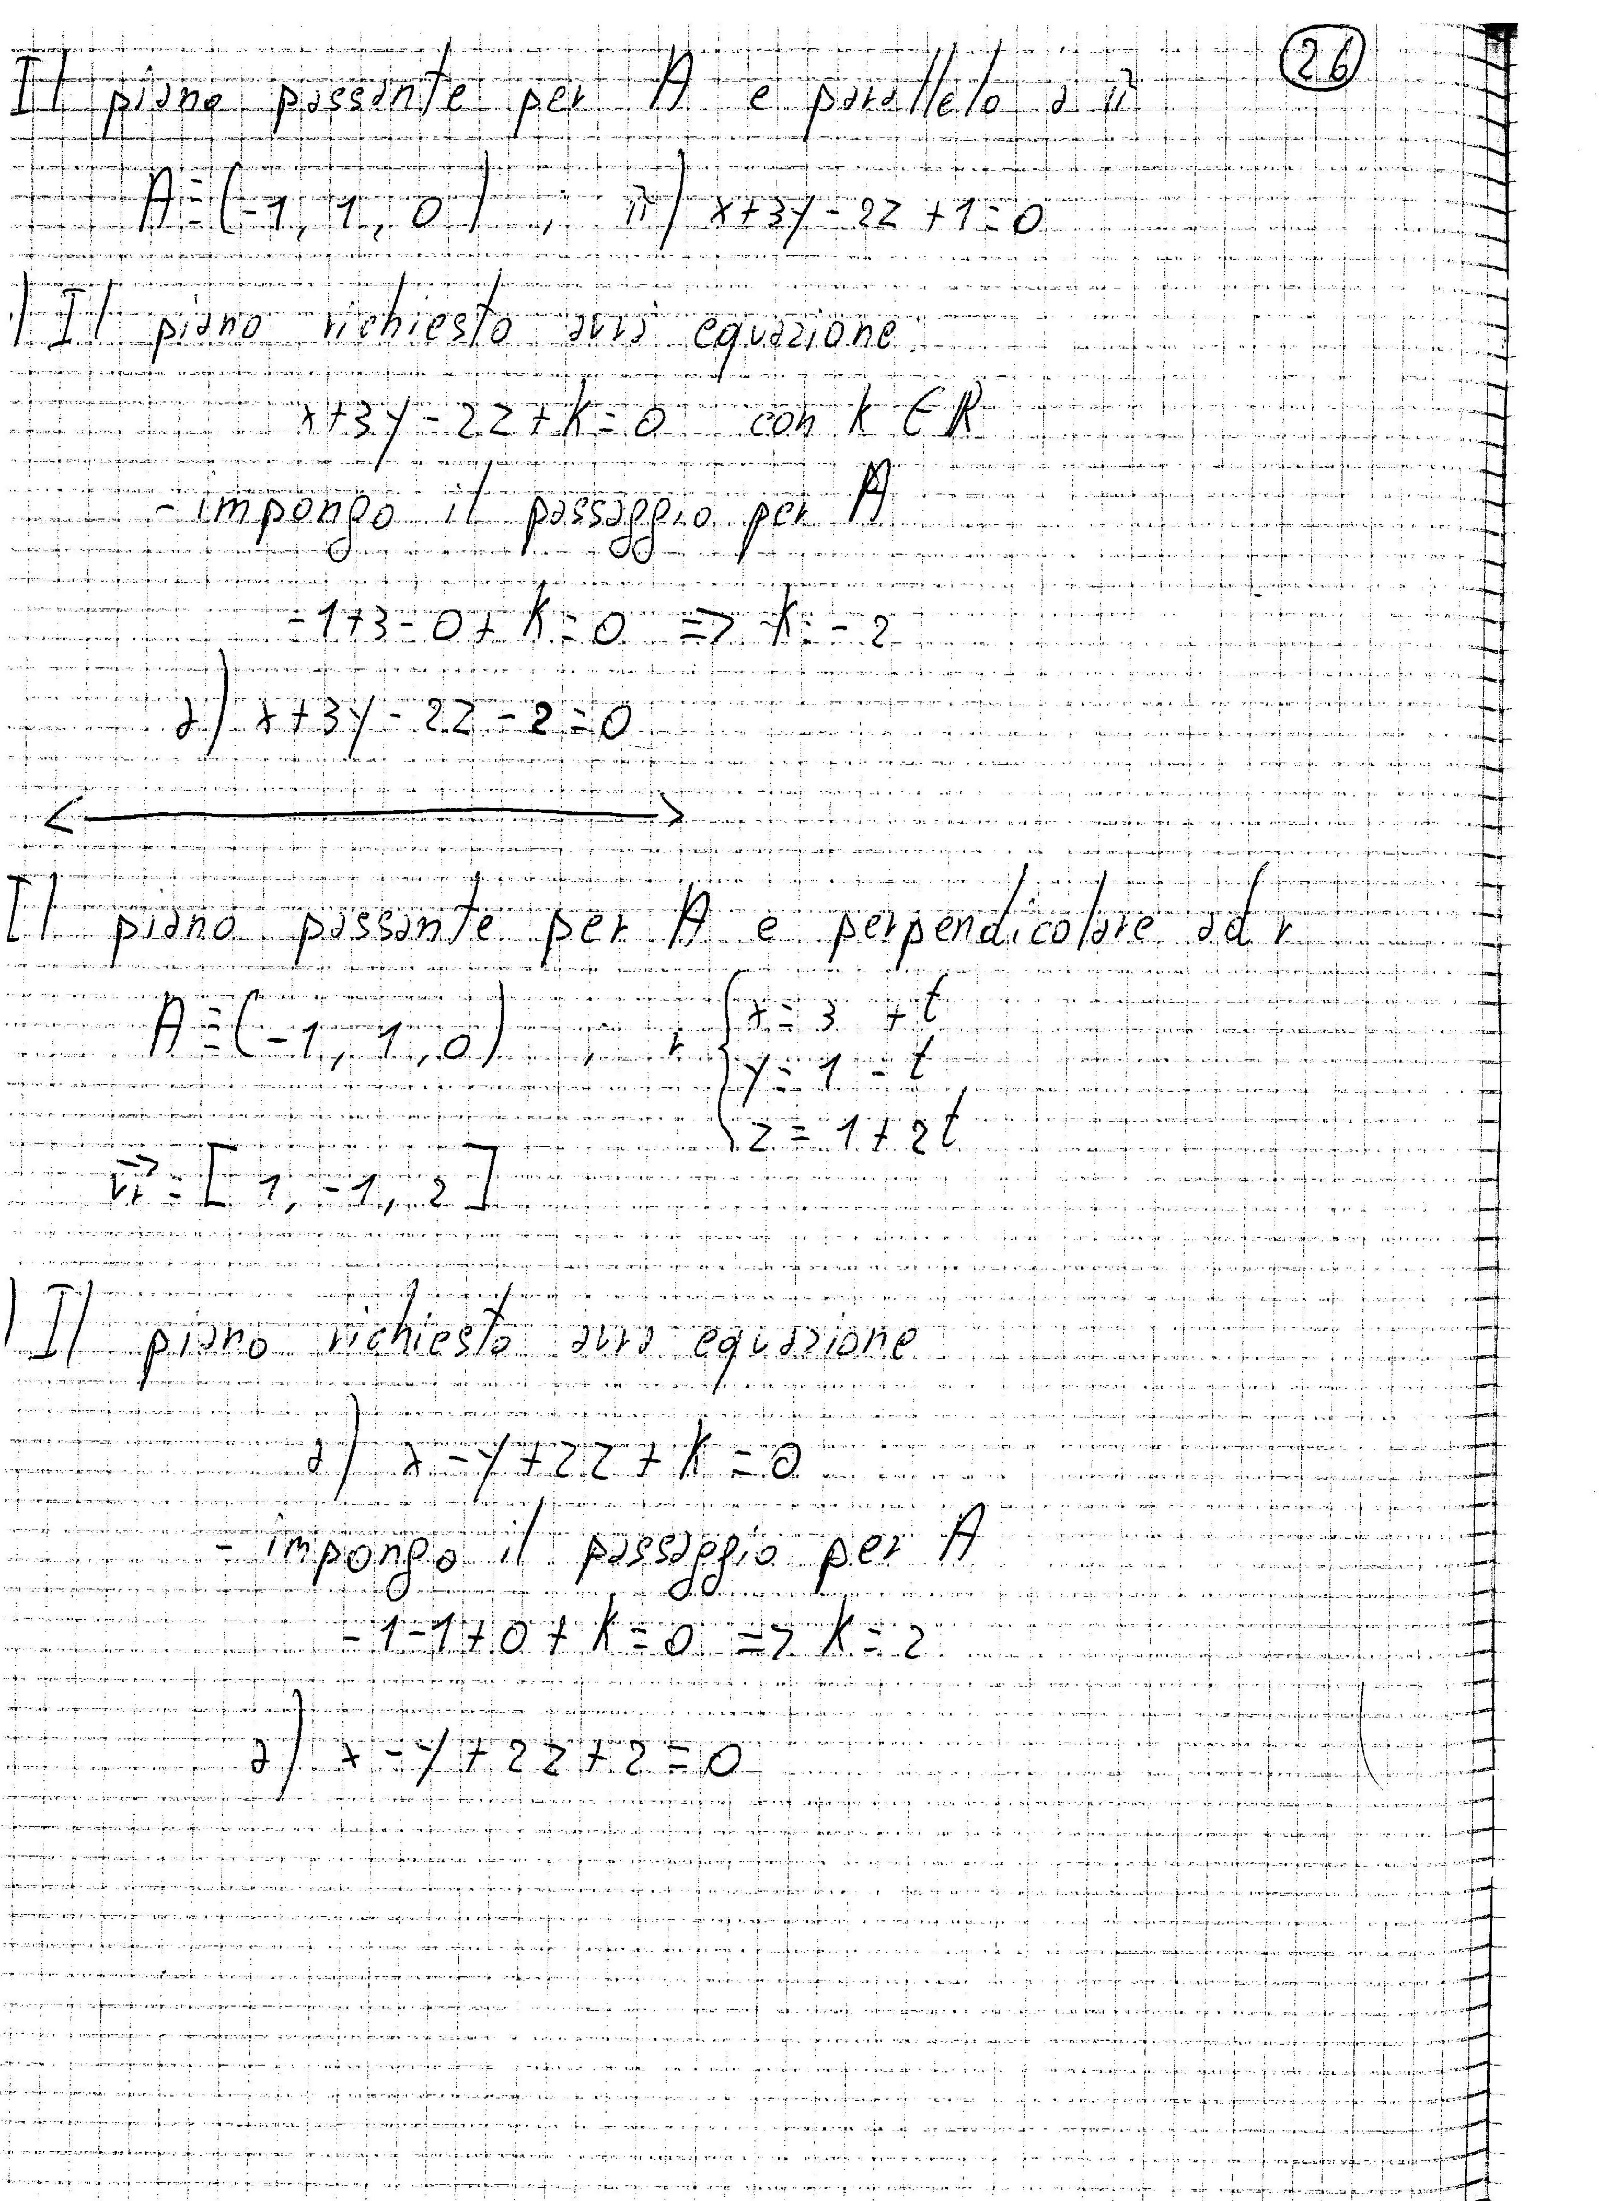 26
Il piano passante per A e parallelo a π
A≡(-1, 1, 0) ; π) x+3y-2z+1=0
Il piano richiesto avrà equazione
x+3y-2z+k=0 con k ∈ ℝ
- impongo il passaggio per A
-1+3-0+k=0 => k=-2
α) x+3y-2z-2=0
Il piano passante per A e perpendicolare ad r
A≡(-1, 1, 0) , r { x=3+t
y=1-t
z=1+2t
vr=[1, -1, 2]
Il piano richiesto avrà equazione
α) x-y+2z+k=0
- impongo il passaggio per A
-1-1+0+k=0 => k=2
α) x-y+2z+2=0